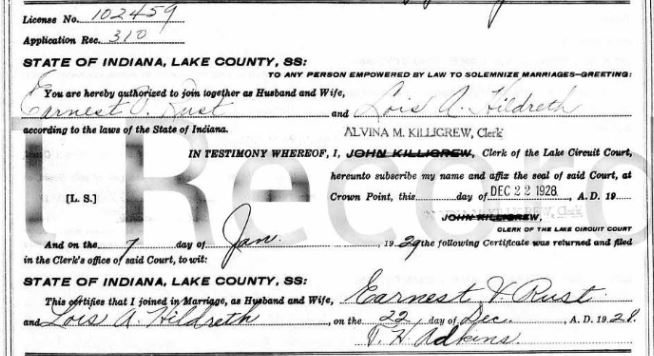 License No. 102459
Application Rec. 310
STATE OF INDIANA, LAKE COUNTY, SS:
TO ANY PERSON EMPOWERED BY LAW TO SOLEMNIZE MARRIAGES—GREETING:
You are hereby authorized to join together as Husband and Wife,
Earnest Rust and Lois A. Hildreth
according to the laws of the State of Indiana.
ALVINA M. KILLIGREW, Clerk
IN TESTIMONY WHEREOF, I, JOHN KILLIGREW, Clerk of the Lake Circuit Court,
hereunto subscribe my name and affix the seal of said Court, at
[L. S.] Crown Point, this day of DEC 22 1928, A. D. 19
JOHN KILLIGREW,
CLERK OF THE LAKE CIRCUIT COURT
And on the 7 day of Jan. 1929 the following Certificate was returned and filed
in the Clerk's office of said Court, to wit:
STATE OF INDIANA, LAKE COUNTY, SS:
This certifies that I joined in Marriage, as Husband and Wife, Earnest V. Rust
and Lois A. Hildreth, on the 22 day of Dec. A. D. 1928.
V. H. Adkins